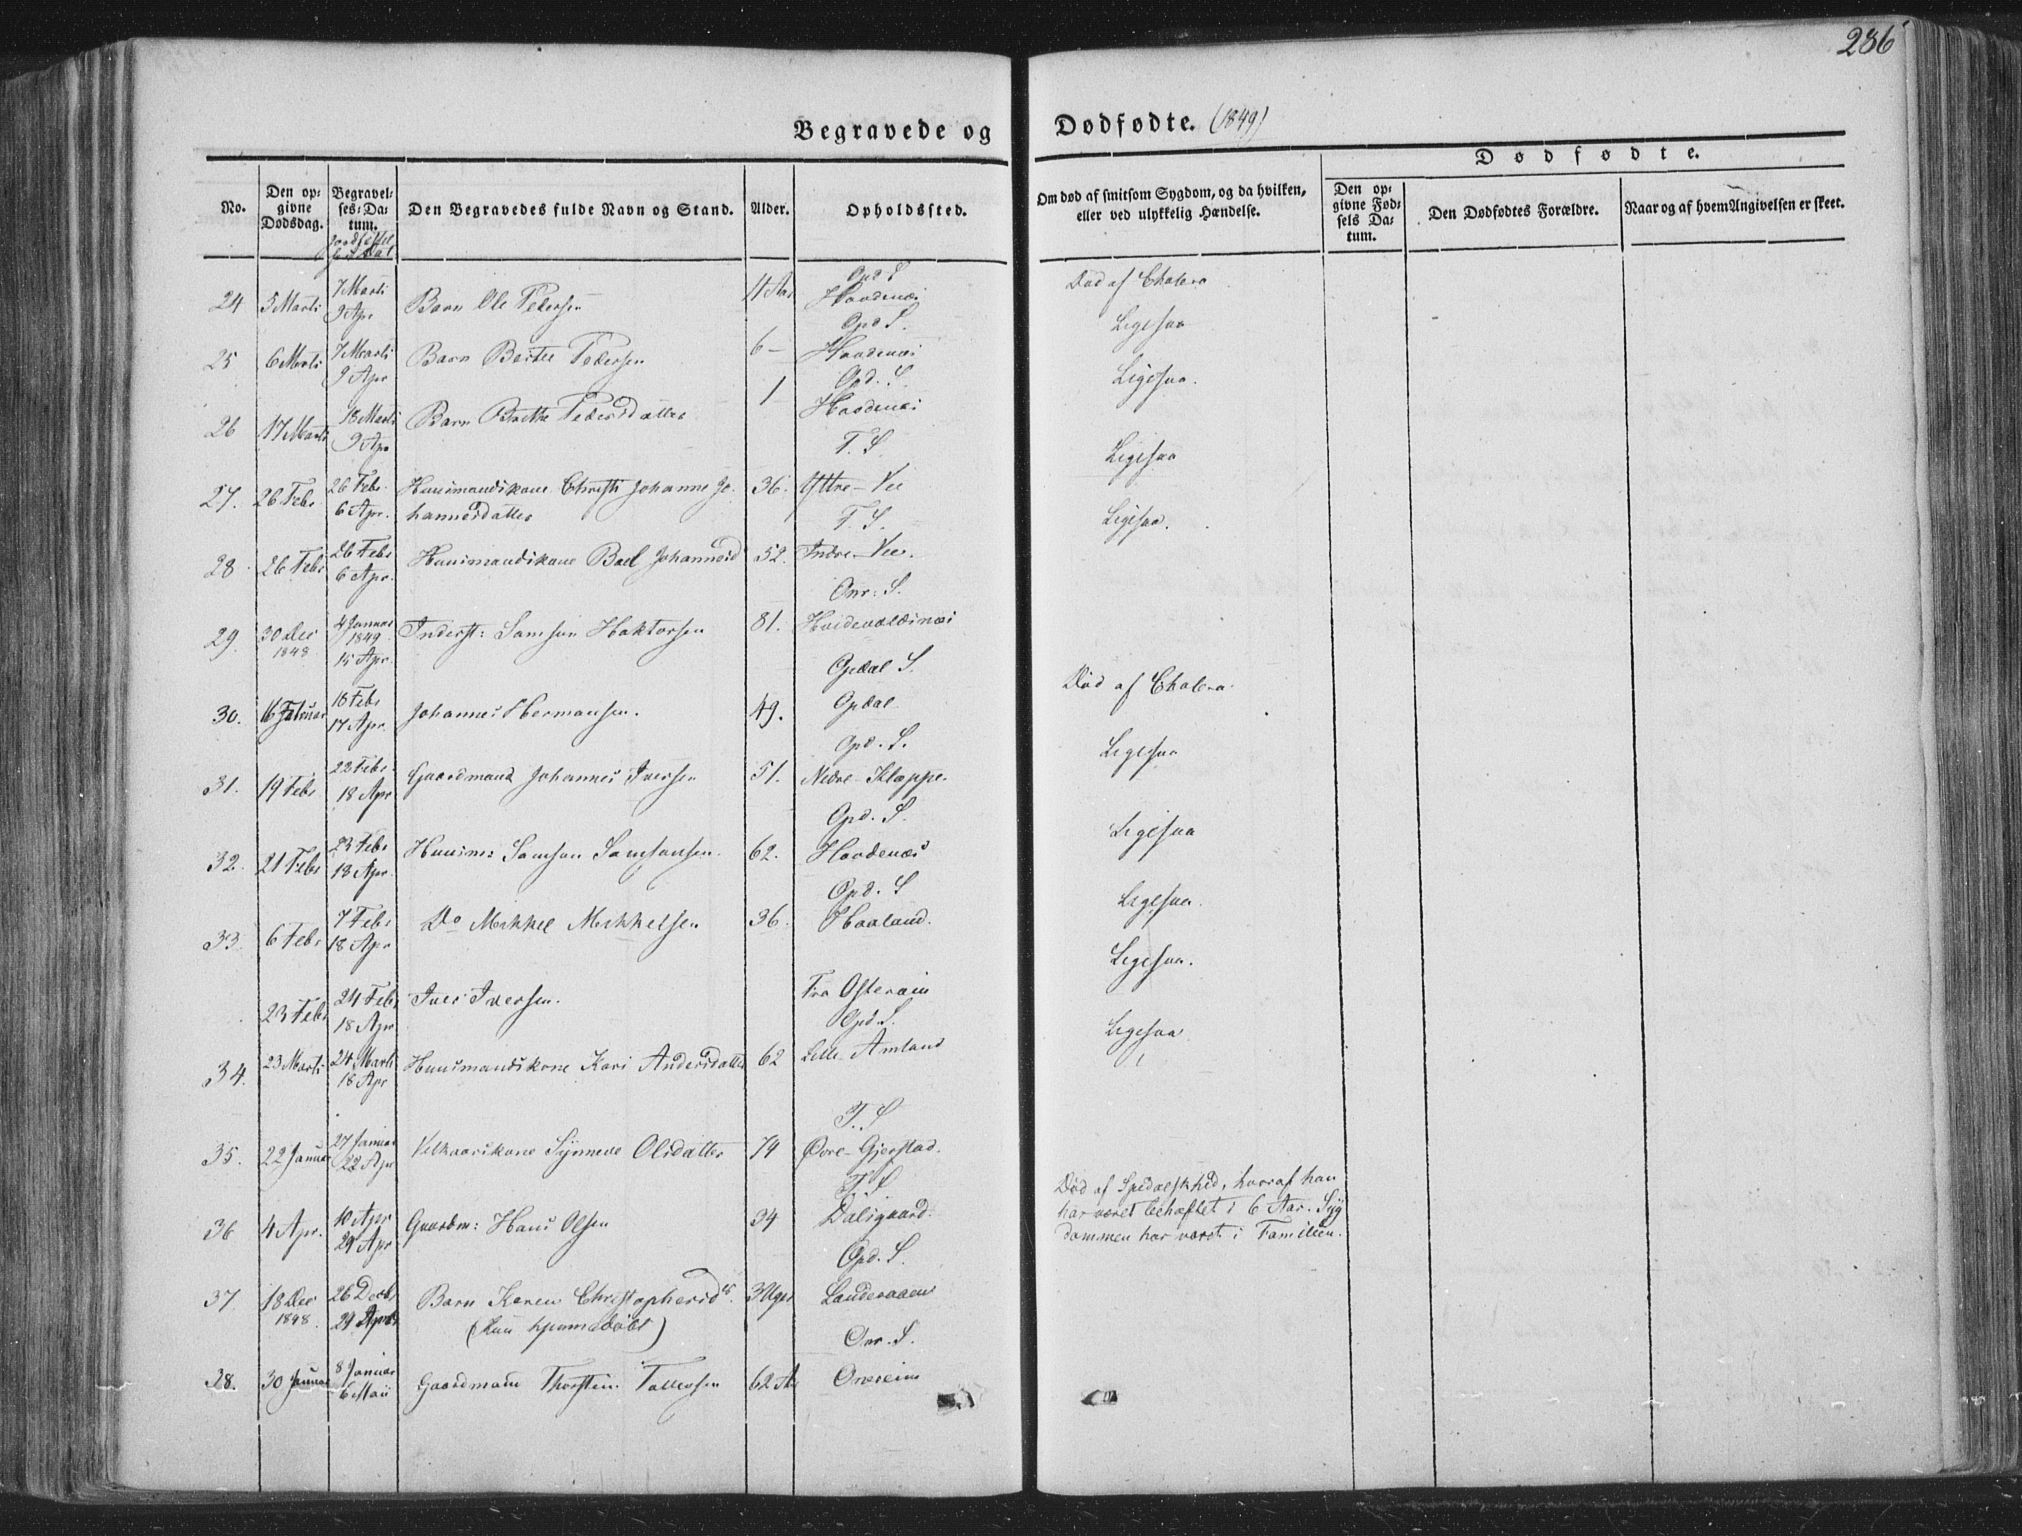 286
Begravede og Dødfødte. (1849)
No.
Den opgivne Dødsdag.
Begravelses-Datum.
Den Begravedes fulde Navn og Stand.
Alder.
Opholdssted.
Om død af smitsom Sygdom, og da hvilken, eller ved ulykkelig Hændelse.
Dødfødte.
Den opgivne Fødsels Datum.
Den Dødfødtes Forældre.
Naar og af hvem Angivelsen er skeet.
24 5 Marti 7 Marti 9 Apr Barn Ole Pedersen 11 Aar Opd S. Haadenæs Død af Cholera
25 6 Marti 7 Marti 9 Apr Barn Pedersen 6 – Opd S. Haadenæs Ligesaa
26 17 Marti 18 Marti 9 Apr Barn Pedersdatter 1 Opd. S. Haadenæs Ligesaa.
27. 26 Febr 26 Febr. 6 Apr. Huusmandskone Christi Johanne Johannesdatter 36. T. S. Yttre-Vee Ligesaa
28 26 Febr 26 Febr 6 Apr. Huusmandskone Johannesd 52. T. S. Indre-Vee. Ligesaa.
29. 30 Dec 1848. 4 Januar 1849 15 Apr. Inderst: Samson Haktorsen 81. Onr: S.
30. 16 Februar 18 Febr 17 Apr. Johannes Hermansen. 49. Opdal S. Opdal Død af Cholera.
31. 19 Febr 22 Febr 18 Apr Gaardmand Johannes Iversen 51. Opd. S. Nedre-Kleppe. Ligesaa
32. 21 Febr 23 Febr 18 Apr. Huusm: Samson Samsonsen. 62. Opd. S. Haadenæs Ligesaa
33. 6 Febr 7 Febr 18 Apr Do Mikkel Mikkelsen 36. Opd. S Haaland. Ligesaa.
23 Febr 24 Febr 18 Apr. Iver Iversen. Fra Osterøin Ligesaa.
34. 23 Marti 24 Marti 18 Apr Huusmandskone Kari Andersdatter 62 Opd. S. Lille-Amland Ligesaa
35. 22 Januar 27 Januar 22 Apr Velkaarskone Synneve Olsdatter 74 T. S Øvre-Gjerstad.
36 4 Apr. 10 Apr 29 Apr Gaardm: Hans Olsen 34 T. S Dalsgaard. Død af Spedalskhed, hvoraf han har været behæftet i 6 Aar. Sygdommen har været i Familien.
37. 18 Dec 1848. 26 Decbr 29 Apr Barn Karen Christophersdr. (kun hjemmedøbt) 3 Uger Opd. S.
38. 30 Januar 8 Januar 6 Maii Gaardmand Thorsten Tollevsen 62 Aar Onr. S.